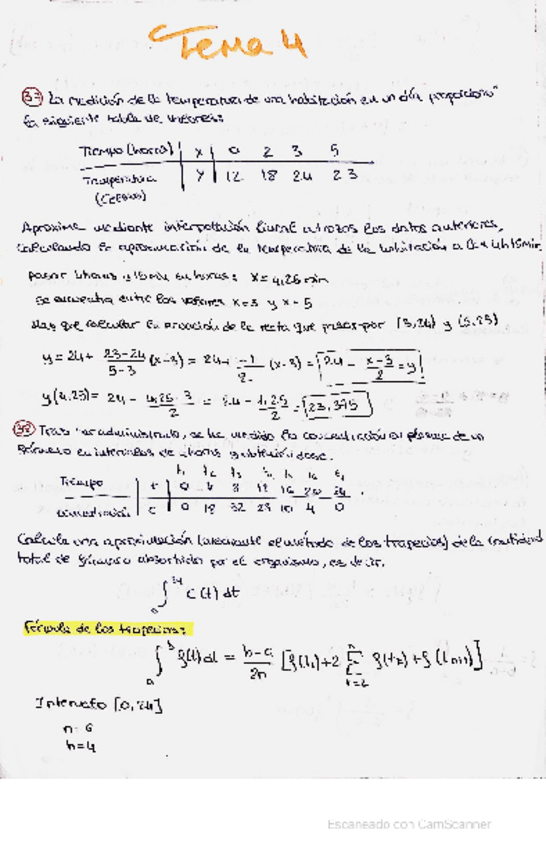 Tema 4
37 La medición de la temperatura de una habitación en un día proporcionó
la siguiente tabla de valores:
Tiempo (horas) | x | 0 2 3 5
Temperatura (Celsius) | y | 12 18 24 23
Aproxime mediante interpolación lineal a trozos los datos anteriores,
calculando la aproximación de la temperatura de la habitación a las 4h 15min.
pasar 4 horas y 15 min en horas: x = 4,25 min
se encuentra entre los valores x=3 y x=5
Hay que calcular la ecuación de la recta que pasa por (3,24) y (5,23)
y = 24 + \frac{23-24}{5-3} (x-3) = 24 + \frac{-1}{2} (x-3) = 24 - \frac{x-3}{2} = y
y(4,25) = 24 - \frac{4,25-3}{2} = 24 - \frac{1,25}{2} = 23,375
38 Tras ser administrado, se ha medido la concentración en plasma de un
fármaco en intervalos de 4 horas
Tiempo | t | 0 4 8 12 16 20 24
concentración | c | 0 18 32 23 10 4 0
Calcula una aproximación (mediante el método de los trapecios) de la cantidad
total de fármaco absorbida por el organismo, es decir,
∫_0^{24} c(t) dt
Fórmula de los trapecios:
∫_a^b f(t) dt = \frac{b-a}{2n} [f(t_1) + 2 ∑_{k=2}^{n} f(t_k) + f(t_{n+1})]
Intervalo [0,24]
n=6
h=4
Escaneado con CamScanner